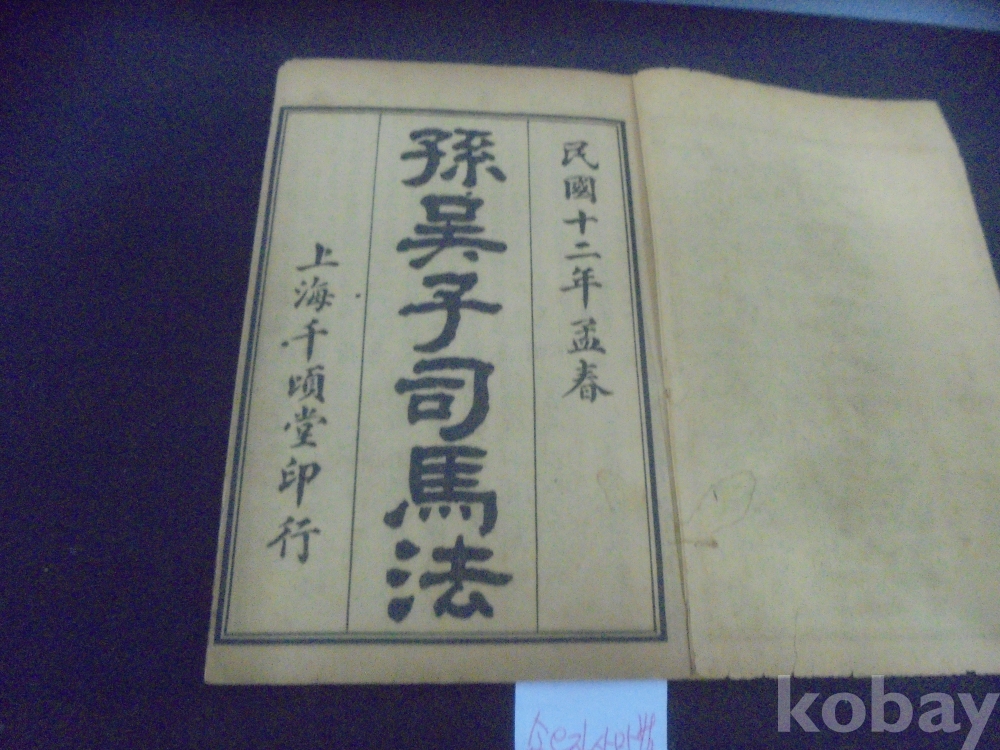 民國十二年孟春
孫吳子司馬法
上海千頃堂印行
손오자사마병
kobay